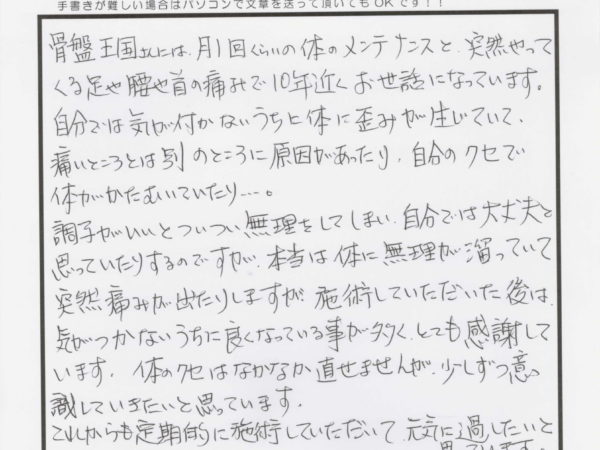 手書きが難しい場合はパソコンで文章を送って頂いてもOKです！！
骨盤王国さんには、月1回くらいの体のメンテナンスと、突然やって
くる足や腰や首の痛みで10年近くお世話になっています。
自分では気が付かないうちに体に歪みが生じていて、
痛いところとは別のところに原因があったり、自分のクセで
体がかたむいていたり…。
調子がいいとついつい無理をしてしまい、自分では大丈夫と
思っていたりするのですが、本当は体に無理が溜っていて
突然痛みが出たりしますが、施術していただいた後は、
気がつかないうちに良くなっている事が多く、とても感謝して
います。体のクセはなかなか直せませんが、少しずつ意
識していきたいと思っています。
これからも定期的に施術していただいて、元気に過したいと
思っています。